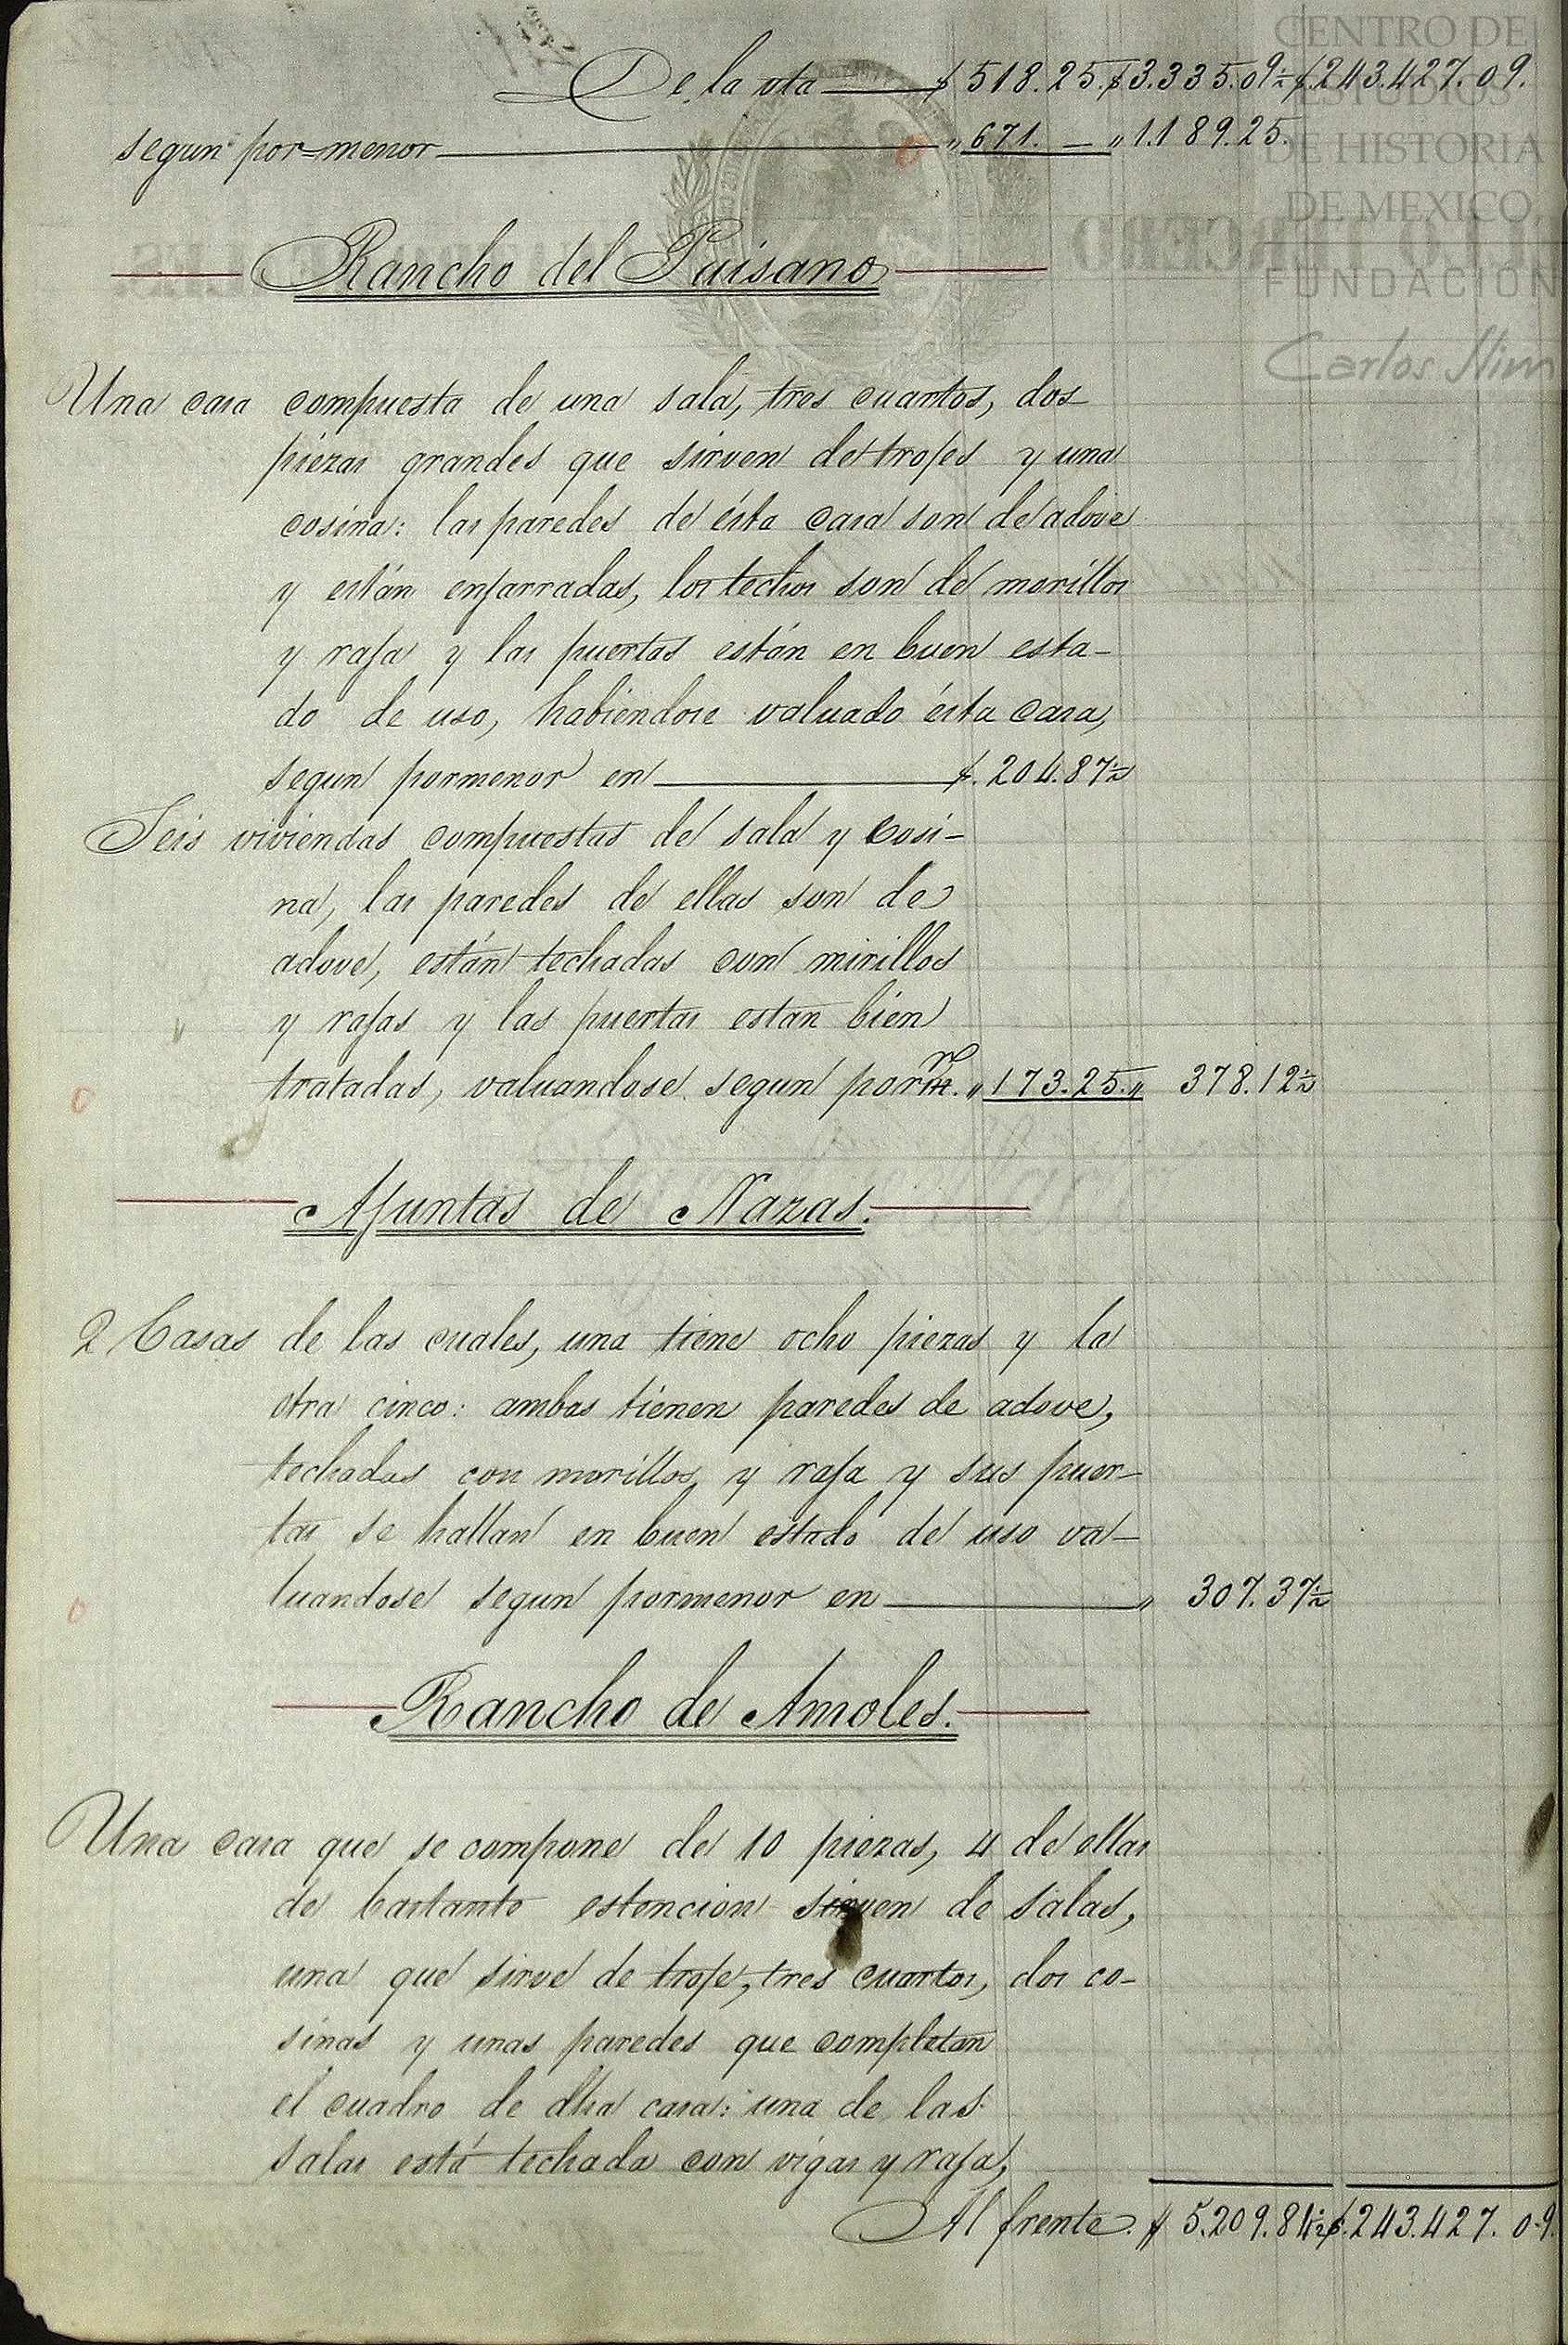 De la vta $ 518.25. $ 3.335.09½ $. 243.427.09.
segun por=menor " 671. — " 1.189.25.
Rancho del Paisano
Una casa compuesta de una sala, tres cuartos, dos
piezas grandes que sirven de trojes y una
cosina: las paredes de ésta casa son de adove
y están enjarradas, los techos son de morillos
y raja y las puertas están en buen esta-
do de uso, habiéndose valuado ésta casa,
segun pormenor en $. 204.87½
Seis viviendas compuestas de sala y cosi-
na, las paredes de ellas son de
adove, están techadas con mirillos
y rajas y las puertas estan bien
tratadas, valuandose segun porm.r " 173.25. " 378.12½
Ajuntas de Nazas.
2 Casas de las cuales, una tiene ocho piezas y la
otra cinco: ambas tienen paredes de adove,
techadas con morillos y raja y sus puer-
tas se hallan en buen estado de uso va-
luandose segun pormenor en " 307.37½
Rancho de Amoles.
Una casa que se compone de 10 piezas, 4 de ellas
de bastante estencion sirven de salas,
una que sirve de troje, tres cuartos, dos co-
sinas y unas paredes que completan
el cuadro de dha casa: una de las
salas está techada con vigas y raja,
Al frente. $ 5.209.84½ $. 243.427.09.
CENTRO DE
ESTUDIOS
DE HISTORIA
DE MEXICO
FUNDACIÓN
Carlos Slim